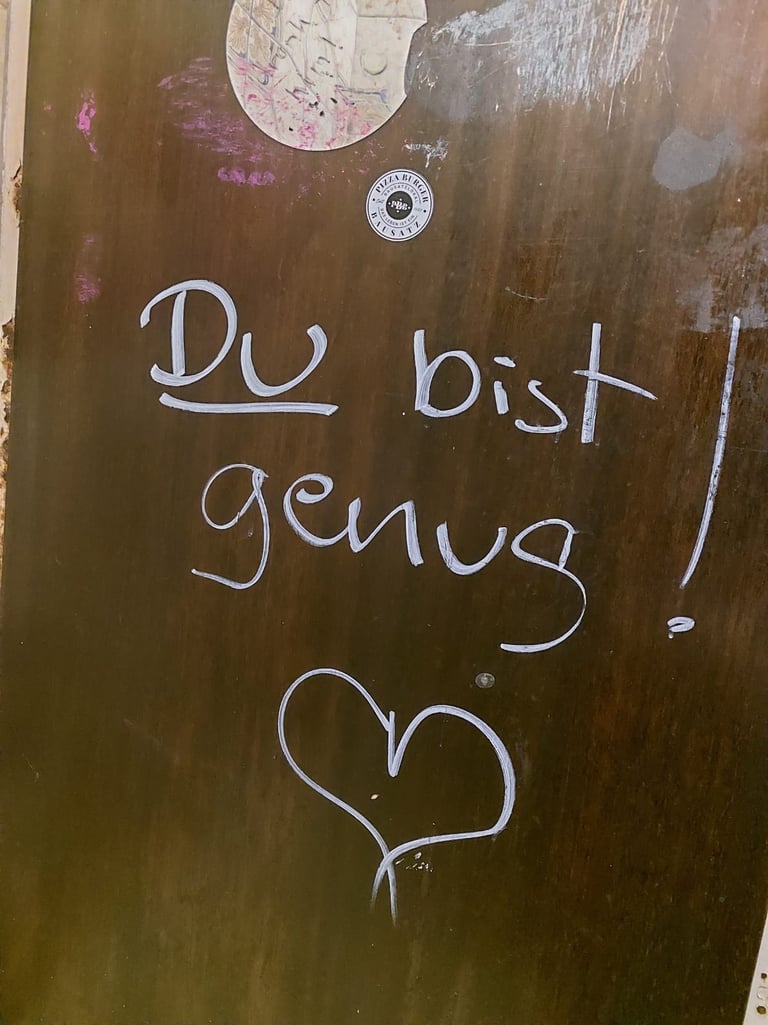 PIZZA BURGER
BAUSATZ
PBB
Du bist
genug!